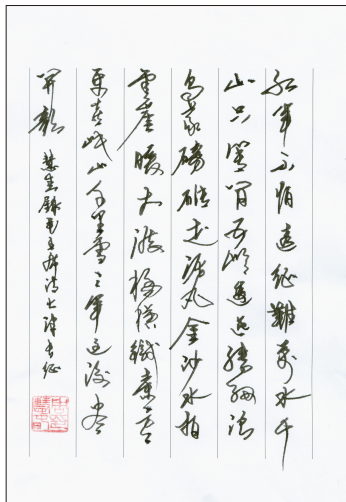 红军不怕遠征難萬水千
山只等闲五岭逶迤腾细浪
乌蒙磅礴走泥丸金沙水拍
雲崖暖大渡橋横鐵索寒
更喜岷山千里雪三军过后尽
開颜 錄毛主席诗七律长征